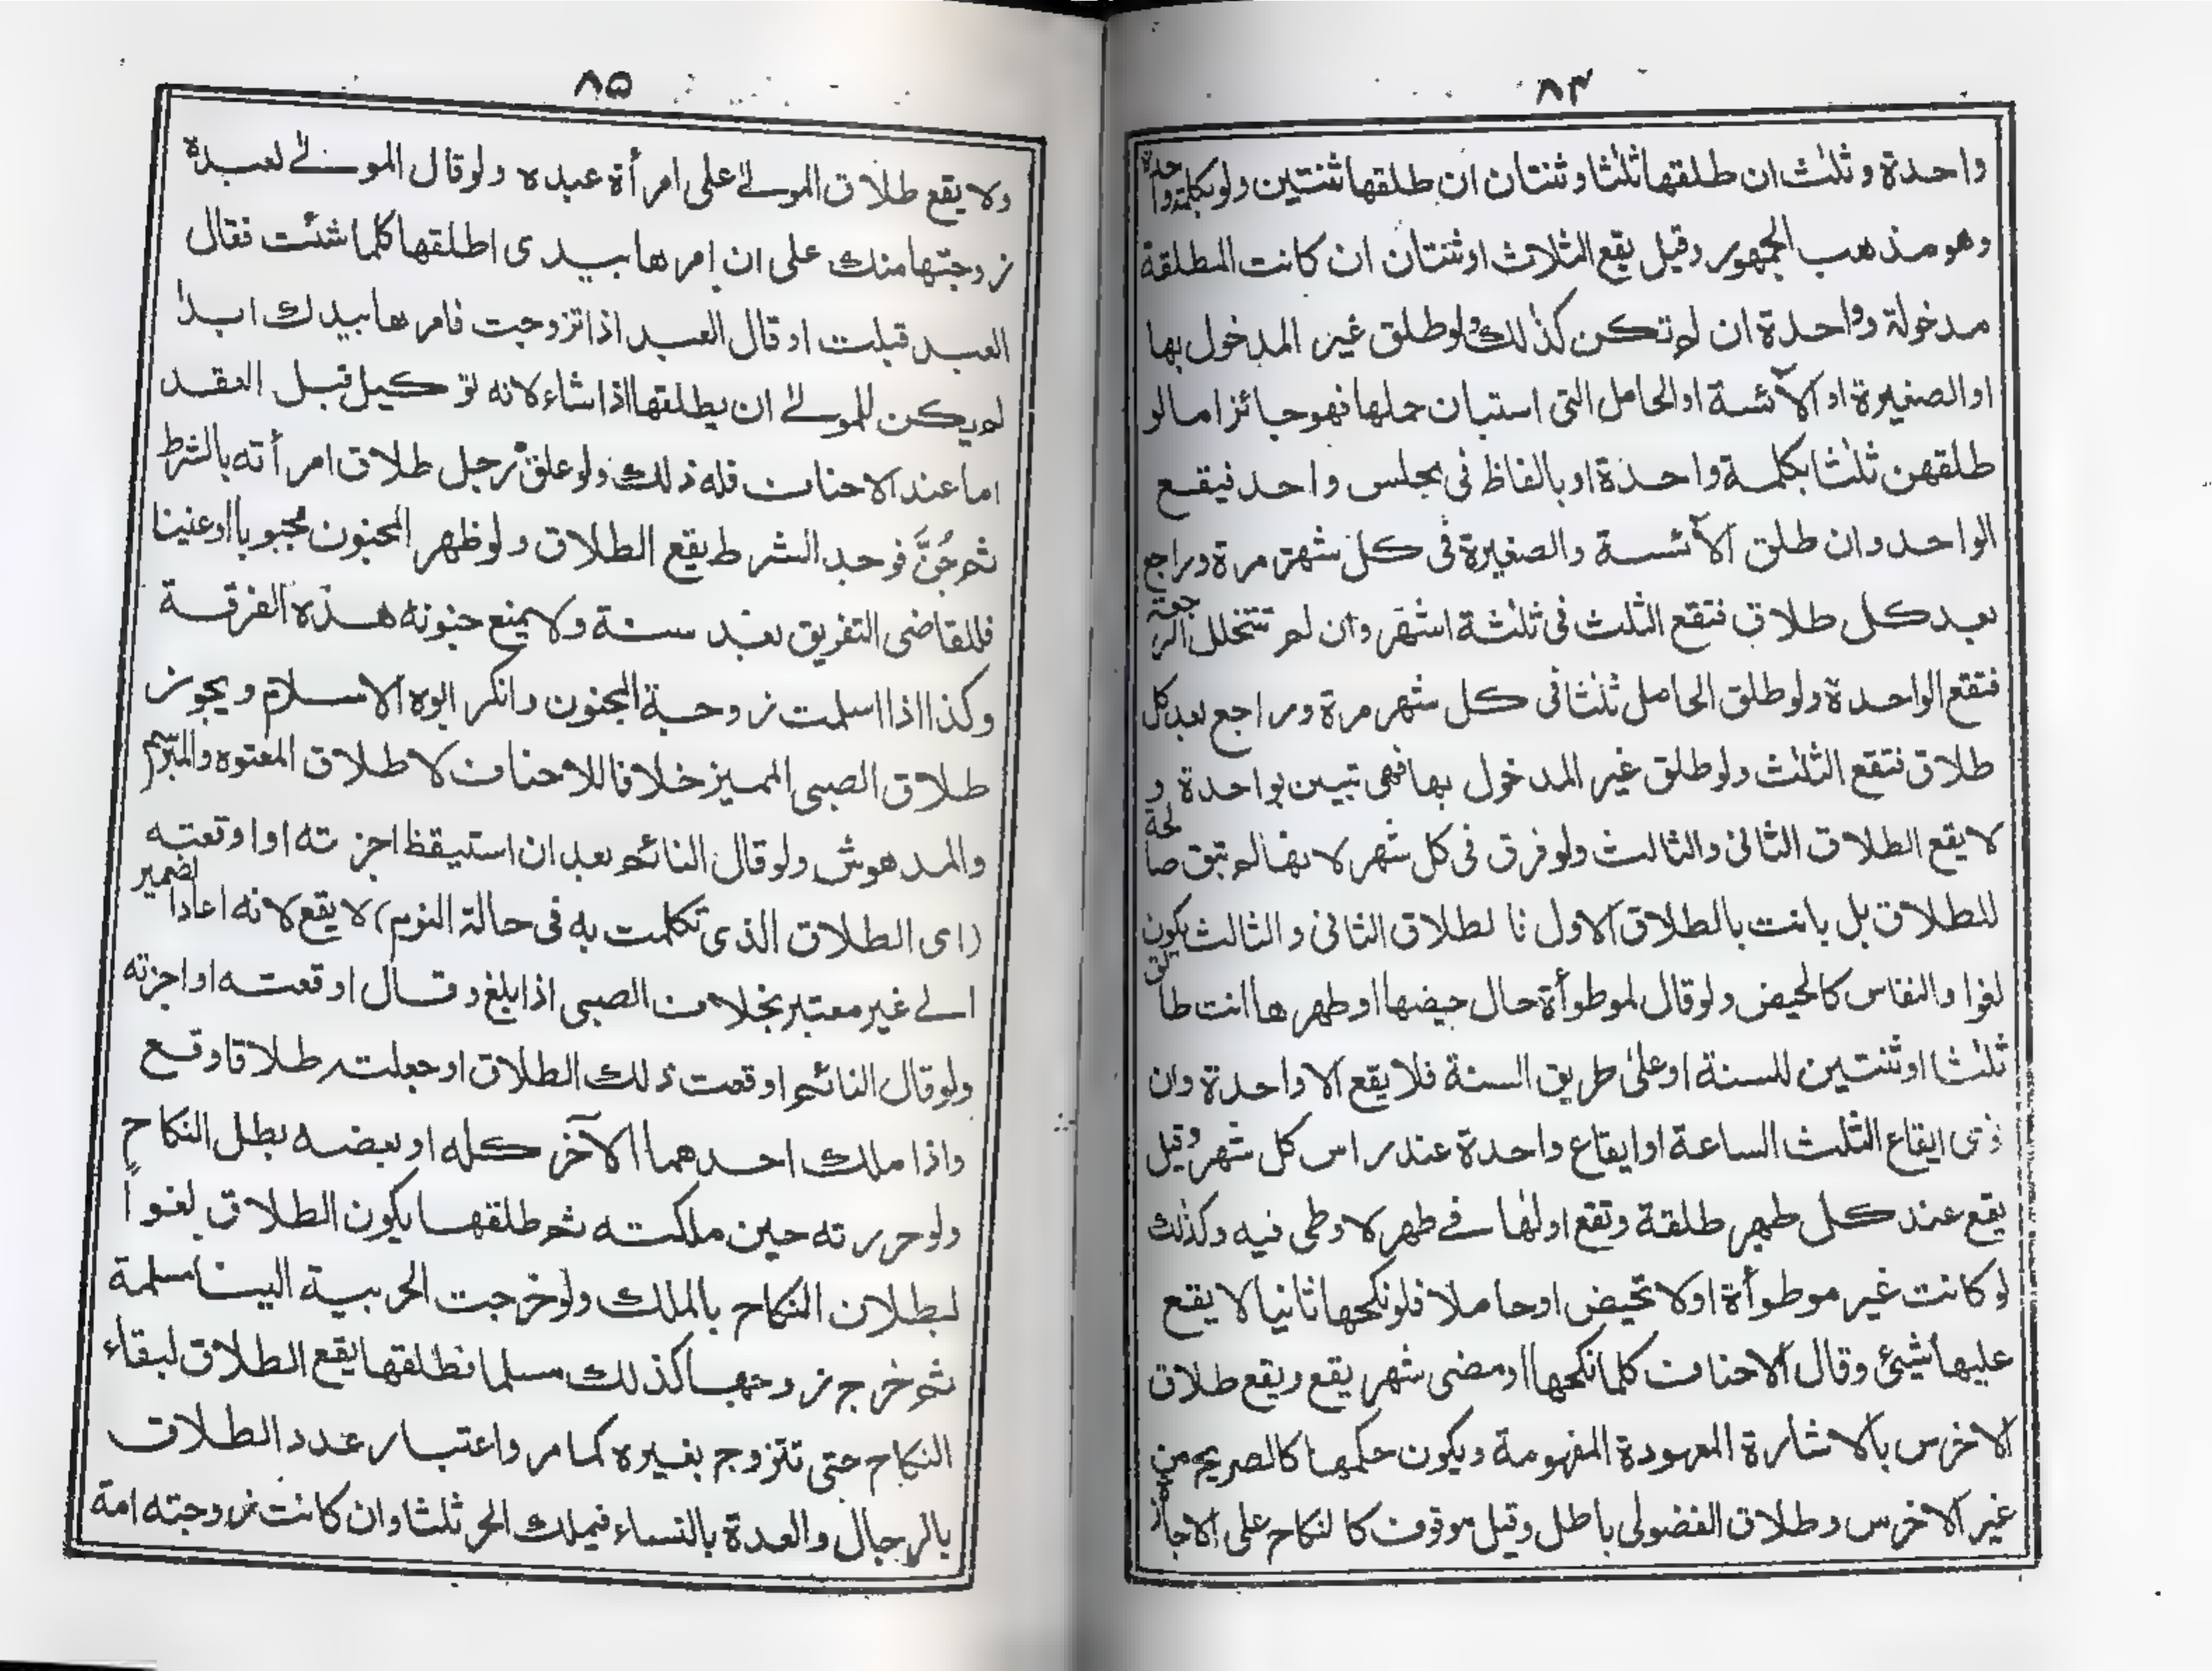 ۸۴
واحدة وثلث ان طلقها ثلثا وثنتان ان طلقها ثنتين ولو بكلمة واحدة
وهو مذهب الجمهور وقيل يقع الثلاث او ثنتان ان كانت المطلقة
مدخولة وواحدة ان لم تكن كذلك ولو طلق غير المدخول بها
او الصغيرة او الآئسة او الحامل التى استبان حملها فهو جائز اما لو
طلقهن ثلثا بكلمة واحدة او بالفاظ فى مجلس واحد فيقع
الواحد وان طلق الآئسة والصغيرة فى كل شهر مرة وراجع
بعد كل طلاق فتقع الثلث فى ثلثة اشهر وان لم تتخلل الرجعة
فتقع الواحدة ولو طلق الحامل ثلثا فى كل شهر مرة وراجع بعد كل
طلاق فتقع الثلث ولو طلق غير المدخول بها فهى تبين بواحدة و
لا يقع الطلاق الثانى والثالث ولو فرق فى كل شهر لانها لم تبق صالحة
للطلاق بل بانت بالطلاق الاول فا لطلاق الثانى والثالث يكون
لغوا والنفاس كالحيض ولو قال لموطوأة حال حيضها او طهرها انت طالق
ثلثا او ثنتين للسنة او على طريق السنة فلا يقع الا واحدة وان
نوى ايقاع الثلث الساعة او ايقاع واحدة عند راس كل شهر وقيل
يقع عند كل طهر طلقة وتقع اولها فى طهر لا وطى فيه وكذلك
لو كانت غير موطوأة او لا تحيض او حاملا فلو نكحها ثانيا لا يقع
عليها شيئ وقال الاحناف كلما نكحها او مضى شهر يقع ويقع طلاق
الاخرس بالاشارة المعهودة المفهومة ويكون حكمها كالصريح من
غير الاخرس وطلاق الفضولى باطل وقيل موقوف كا لنكاح على الاجازة
۸۵
ولا يقع طلاق المولى على امرأة عبده ولو قال المولى لعبده
زوجتها منك على ان امرها بيدى اطلقها كلما شئت فقال
العبد قبلت او قال العبد اذا تزوجت فامرها بيدك ابدا
لم يكن للمولى ان يطلقها اذا شاء لانه توكيل قبل العقد
اما عند الاحناف فله ذلك ولو علق رجل طلاق امرأته بالشرط
ثم جُنَّ فوجد الشرط يقع الطلاق ولو ظهر المجنون مجبوبا او عنينا
فللقاضى التفريق بعد سنة ولا يمنع جنونه هذه الفرقة
وكذا اذا اسلمت زوجة المجنون وانكر ابوه الاسلام ويجوز
طلاق الصبى المميز خلافا للاحناف لا طلاق المعتوه والمبرسم
والمدهوش ولو قال النائم بعد ان استيقظ اجزته او اوقعته
(اى الطلاق الذى تكلمت به فى حالة النوم) لا يقع لانه اعاد الضمير
الى غير معتبر بخلاف الصبى اذا بلغ وقال اوقعته او اجزته
ولو قال النائم اوقعت ذلك الطلاق او جعلته طلاقا وقع
واذا ملك احدهما الآخر كله او بعضه بطل النكاح
ولو حررته حين ملكته ثم طلقها يكون الطلاق لغواً
لبطلان النكاح بالملك ولو خرجت الحربية الينا مسلمة
ثم خرج زوجها كذلك مسلما فطلقها يقع الطلاق لبقاء
النكاح حتى تتزوج بغيره كما مر واعتبار عدد الطلاق
بالرجال والعدة بالنساء فيملك الحر ثلثا وان كانت زوجته امة